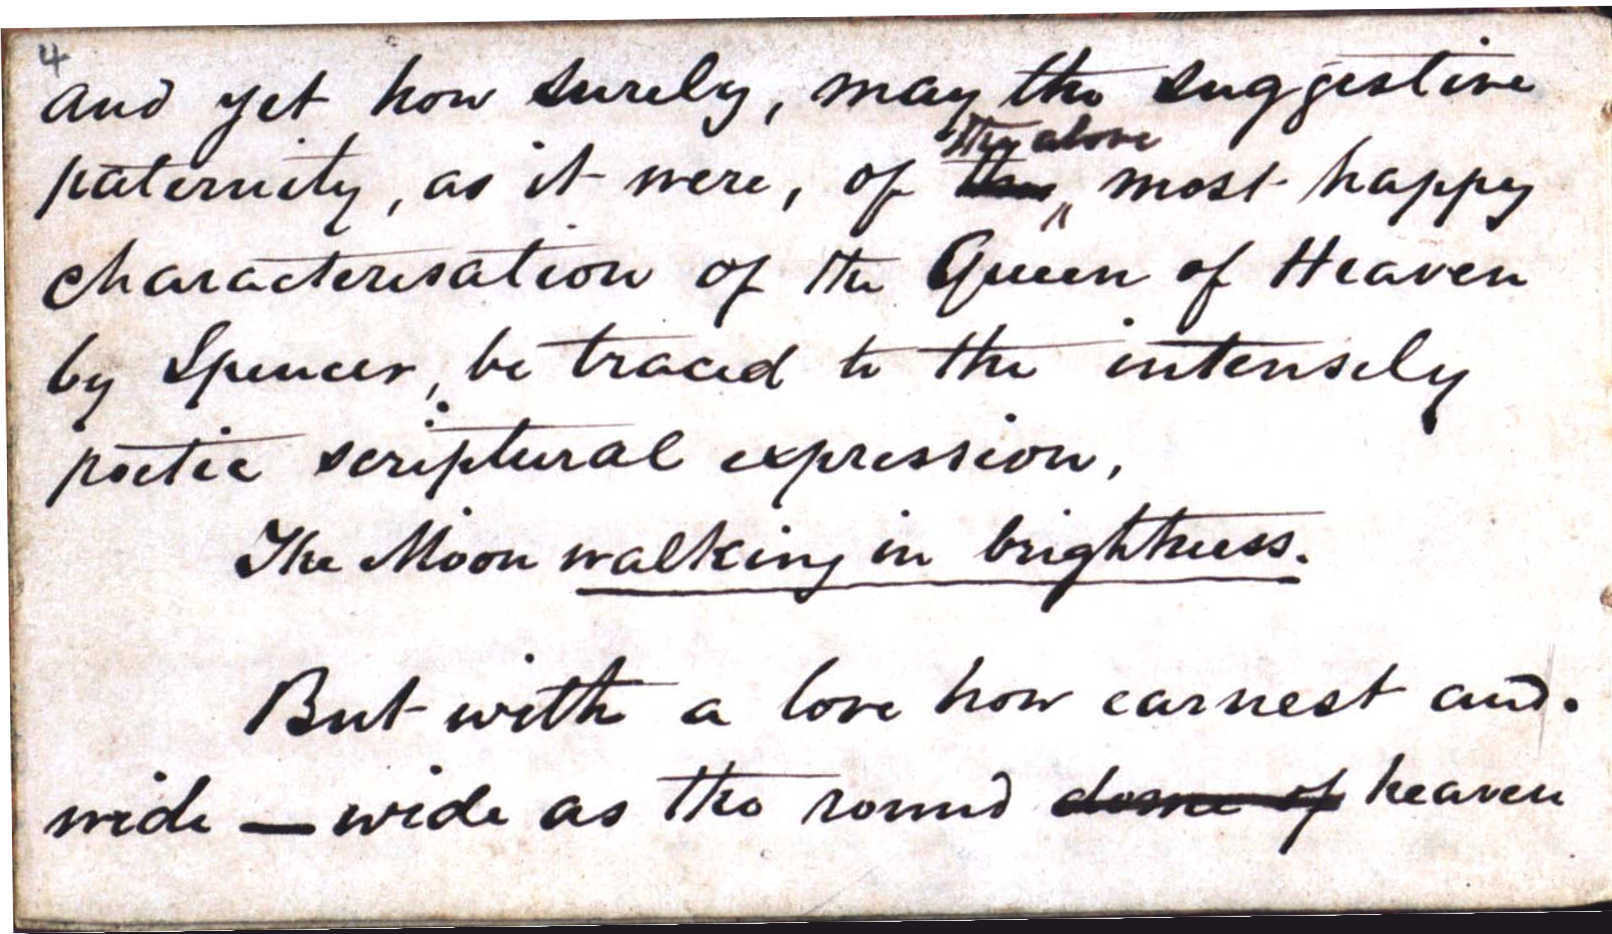 4
and yet how surely, may the suggestive
the above
paternity, as it were, of this most happy
characterisation of the Queen of Heaven
by Spencer, be traced to the intensely
poetic scriptural expression,
The Moon walking in brightness.
But with a love how earnest and
wide — wide as the round dome of heaven